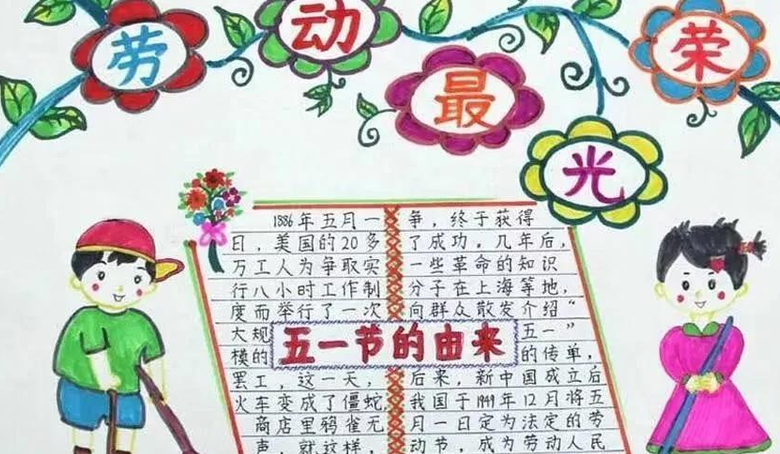 劳动最光荣
五一节的由来
1886年五月一
日，美国的20多
万工人为争取实
行八小时工作制
度而举行了一次
大规
模的
罢工，这一天，
火车变成了僵蛇，
商店里鸦雀无
声，就这样，
争，终于获得
了成功，几年后，
一些革命的知识
分子在上海等地，
向群众散发介绍“
五一”
的传单，
后来，新中国成立后
我国于1949年12月将五
月一日定为法定的劳
动节，成为劳动人民